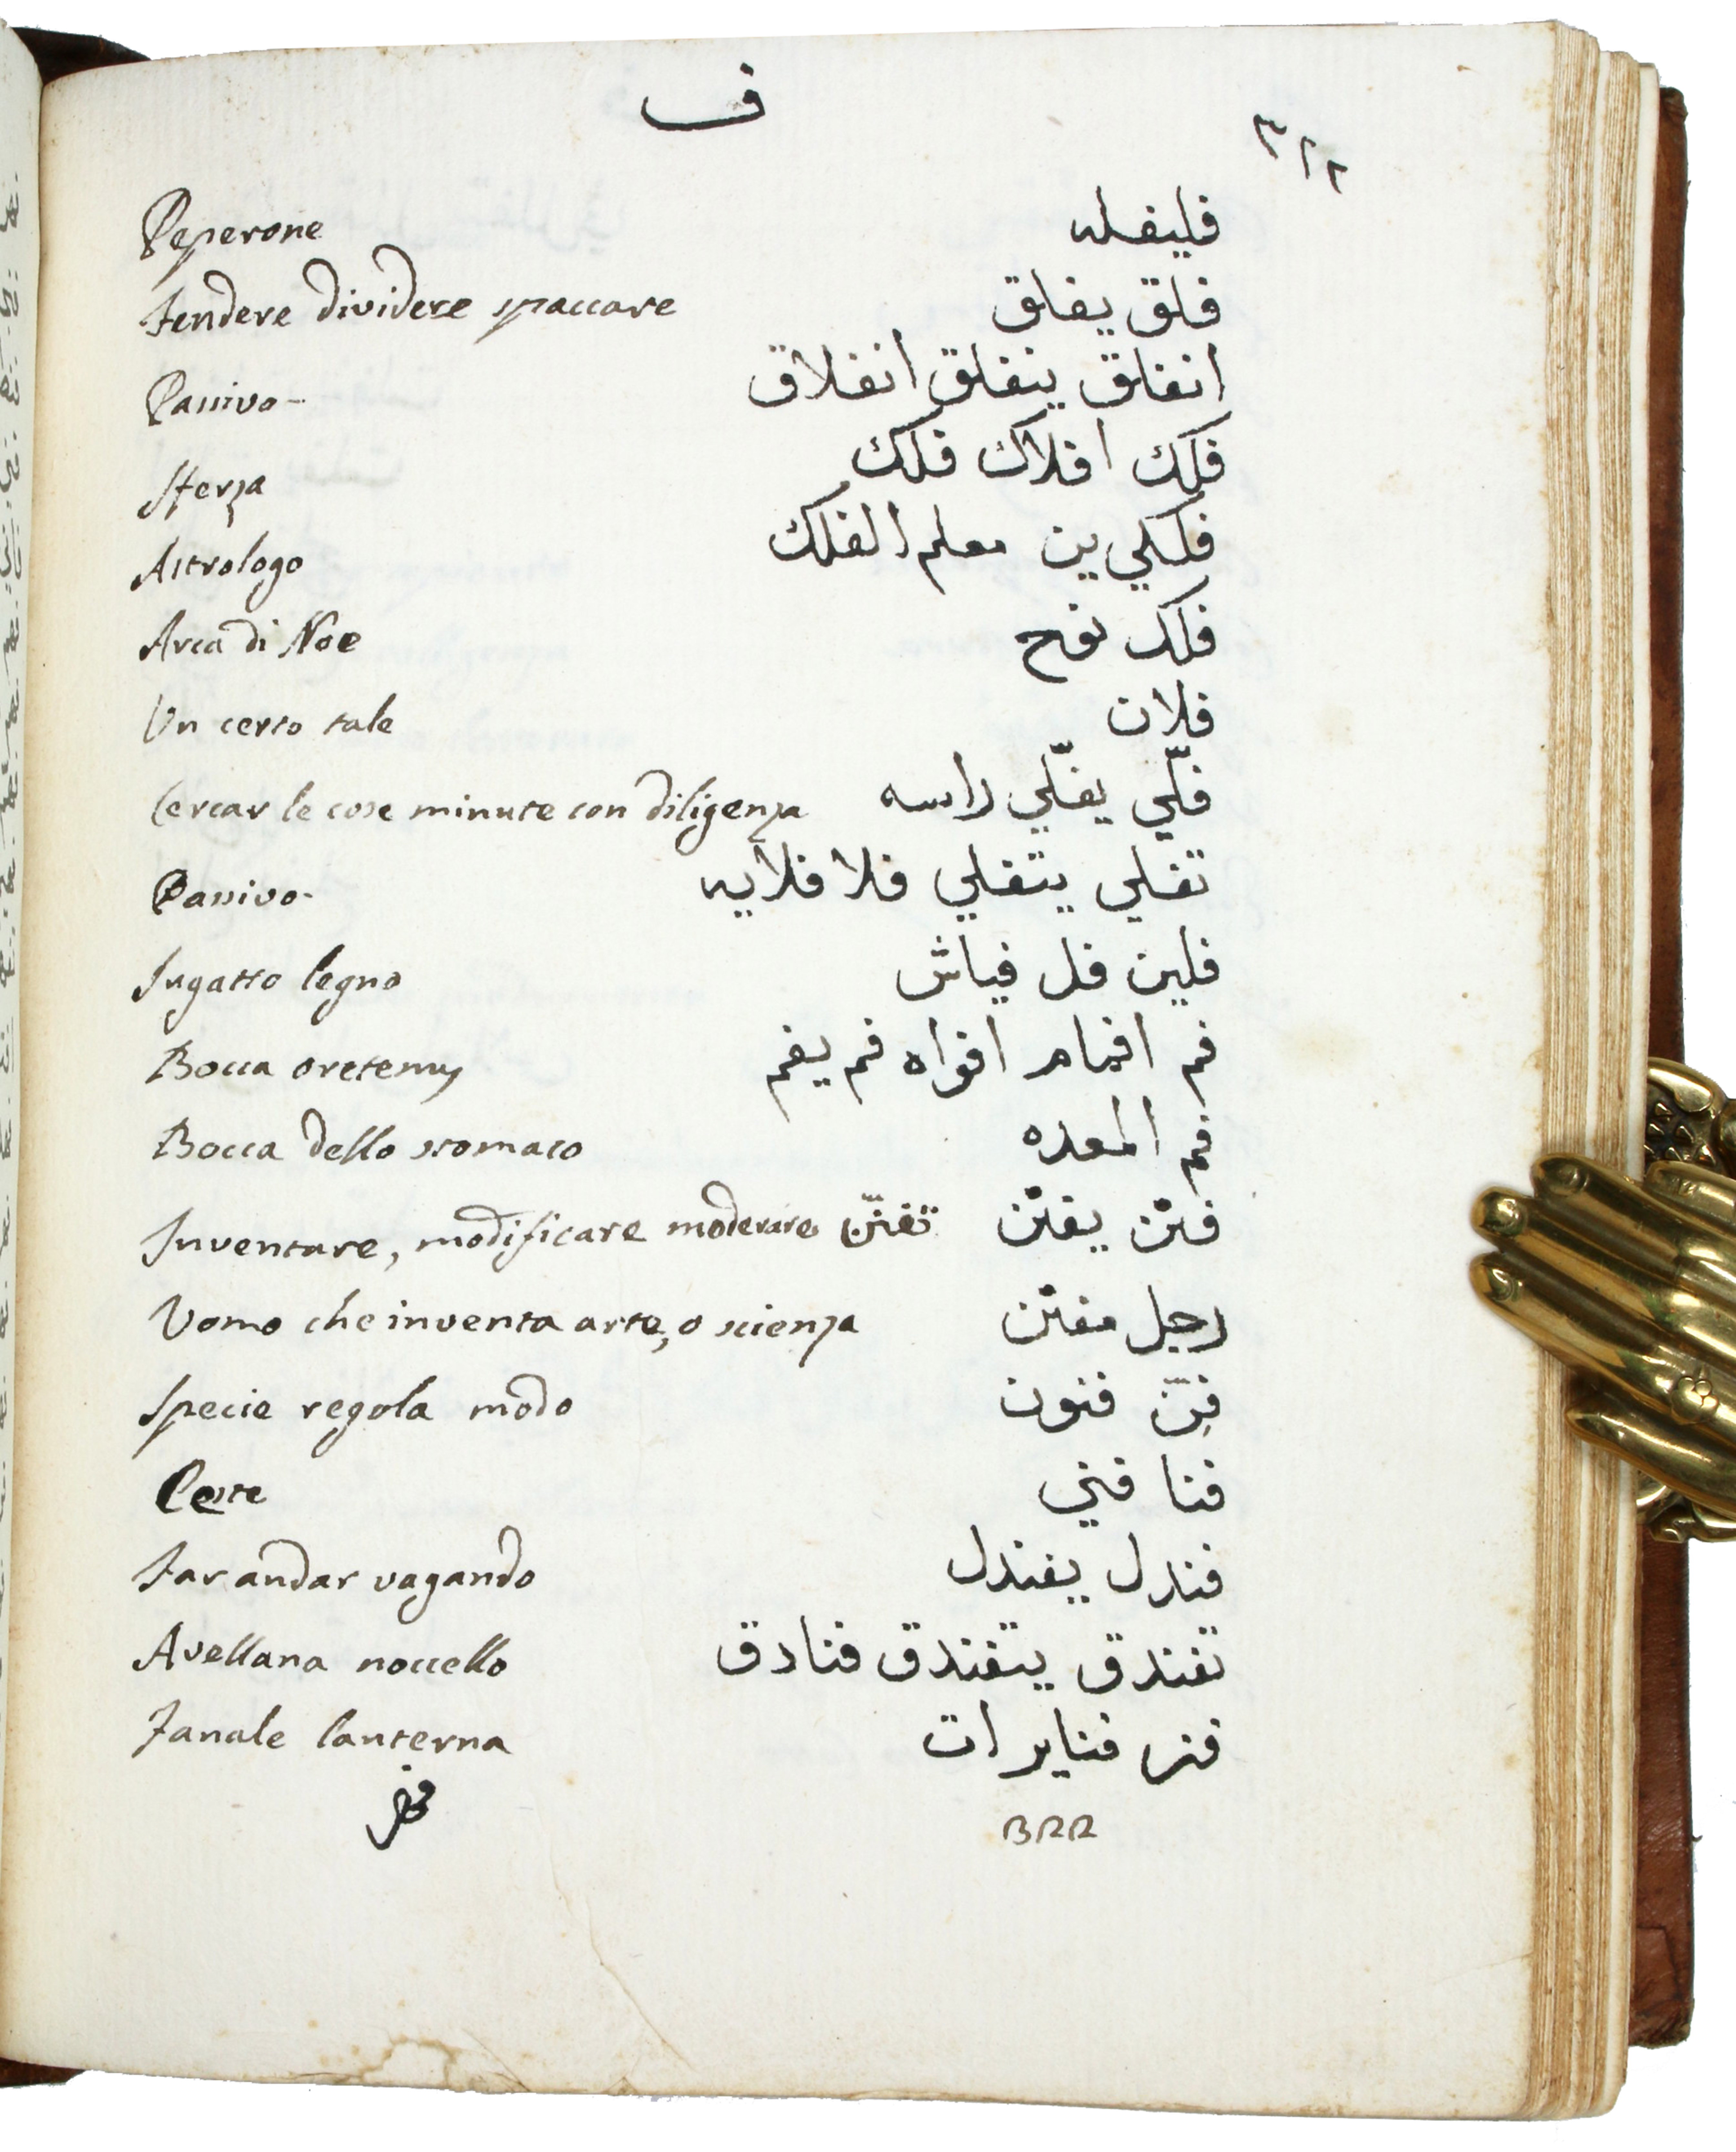 ف
٣٢٢
Peperone فليفله
Fendere dividere spaccare فلق يفلق
Passivo- انفلق ينفلق انفلاق
Sferza فلك افلاك فلك
Astrologo فلكي ين معلم الفلك
Arca di Noe فلك نوح
Un certo tale فلان
Cercar le cose minute con diligenza فلّي يفلّي راسه
Passivo- تفلي يتفلي فلا فلايه
Sugatto legno فلين فل فياش
Bocca فم افمام افواه فم يفم
Bocca dello stomaco فم المعده
Inventare, modificare moderare تفنّن فنّن يفنّن
Uomo che inventa arte, o scienza رجل مفنّن
Specie regola modo فنّ فنون
Peste فنا فني
Far andar vagando فندل يفندل
Avellana noccello تفندق يتفندق فنادق
Fanale lanterna فنر فناير ات
322